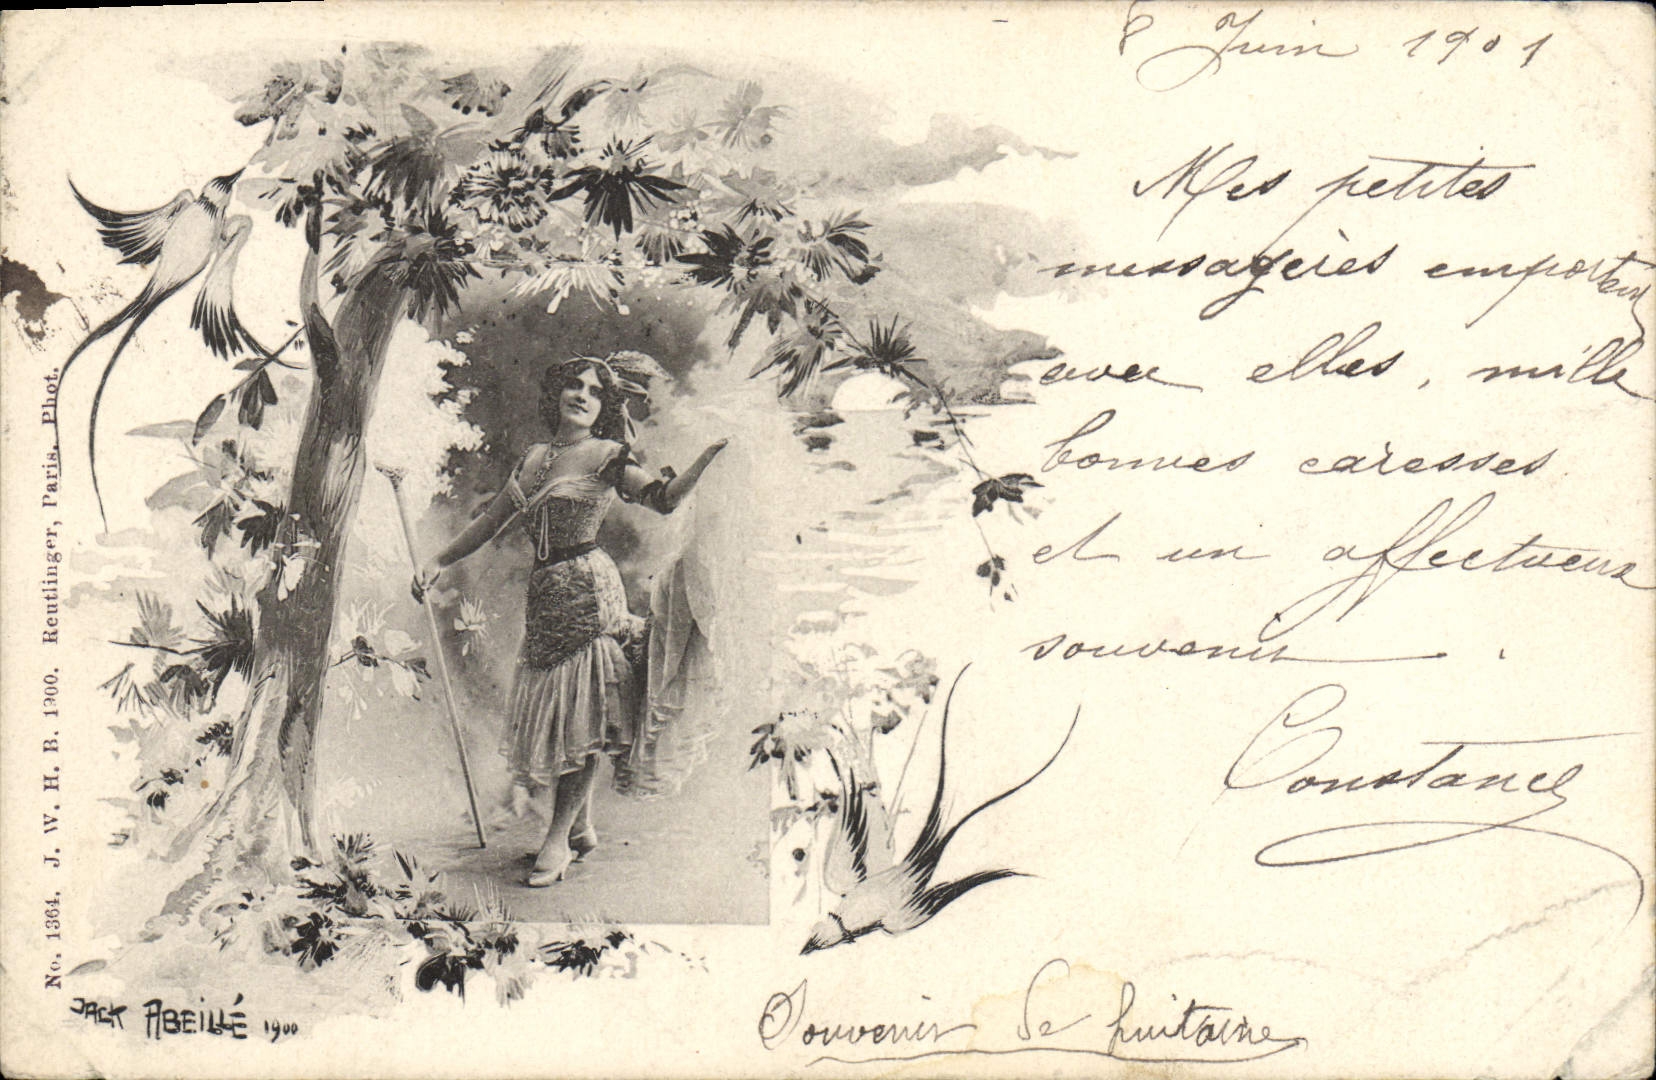 8 Juin 1901
Mes petites
messagères emportent
avec elles, mille
bonnes caresses
et un affectueux
souvenir.
Constance
Souvenir de huitaine
No. 1364. J. W. H. B. 1900. Reutlinger, Paris. Phot.
JACK ABEILLÉ 1900